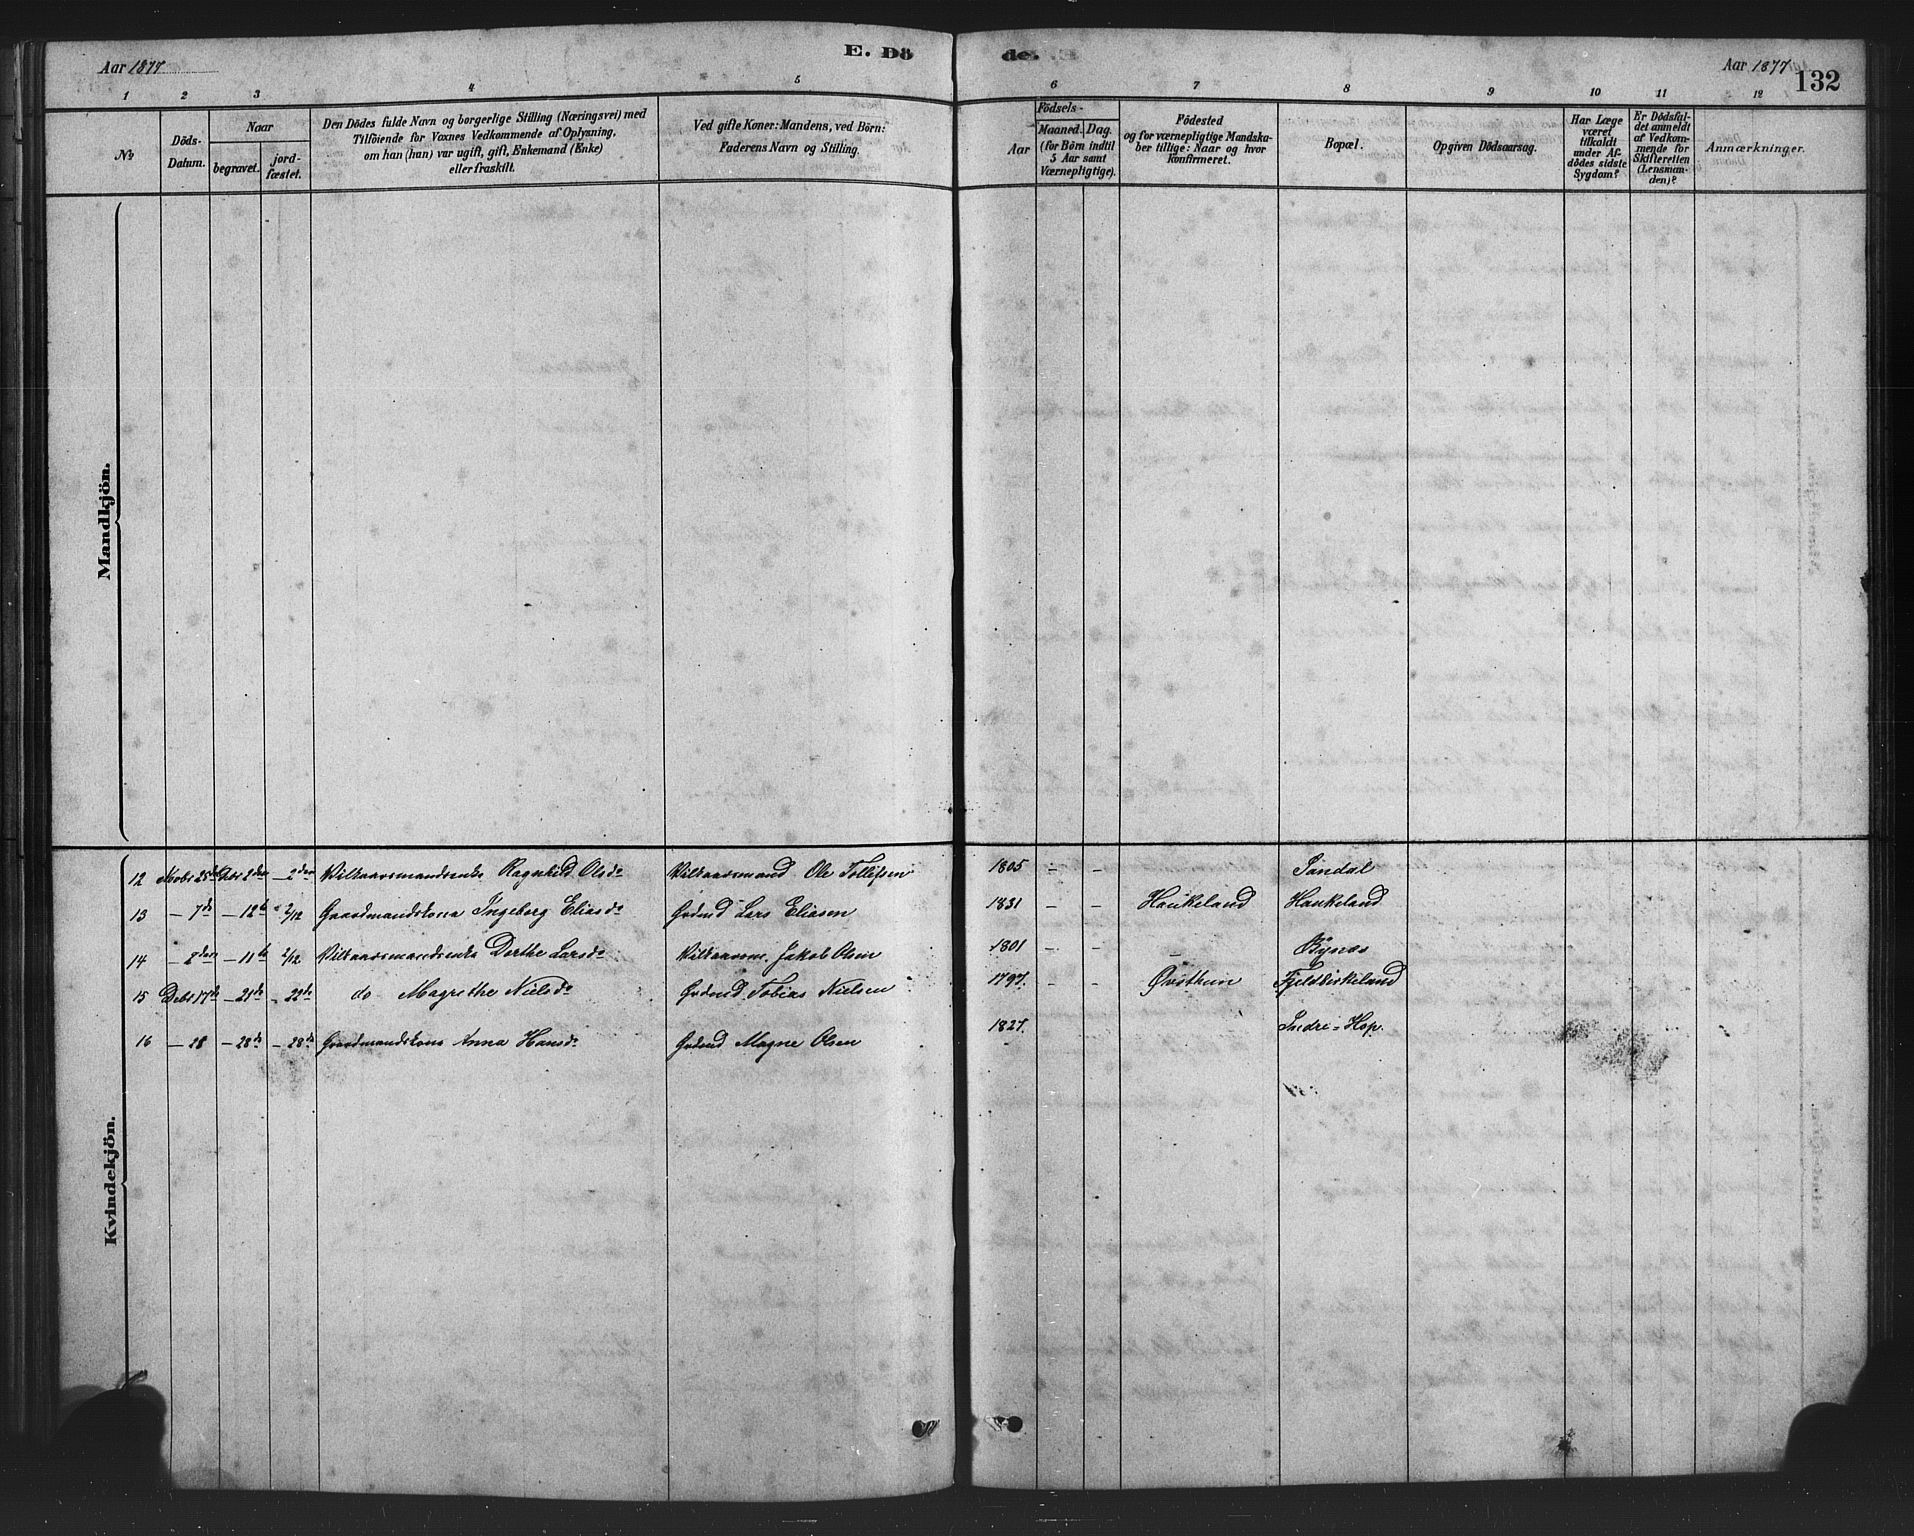 E. Dö de.
Aar 1877
Aar 1877
132
1 2 3 4 5 6 7 8 9 10 11 12
No
Döds-Datum.
Naar
begravet.
jord-fæstet.
Den Dödes fulde Navn og borgerlige Stilling (Næringsvei) med
Tilföiende for Voxnes Vedkommende af Oplysning,
om han (hun) var ugift, gift, Enkemand (Enke)
eller fraskilt.
Ved gifte Koner: Mandens, ved Börn:
Faderens Navn og Stilling.
Födsels-
Aar
Maaned. Dag.
(for Börn indtil
5 Aar samt
Værnepligtige).
Födested
og for værnepligtige Mandska-
ber tillige: Naar og hvor
Konfirmeret.
Bopæl.
Opgiven Dödsaarsag.
Har Læge
været
tilkaldt
under Af-
dödes sidste
Sygdom?
Er Dödsfal-
det anmeldt
af Vedkom-
mende for
Skifteretten
(Lensman-
den)?
Anmærkninger.
Mandkjön.
Kvindekjön.
12 Novbr 25de Dbr 2den — 2den Vilkaarsmandsenke Ragnhild Olsdr Vilkaarsmand Ole Tollefsen 1805 – – Sandal
13 — 7de — 12te 2/12 Gaardmandskona Ingeborg Eliasdr Grdmd Lars Eliasen 1831 – – Haukeland Haukeland
14 — 8den — 11te 2/12 Vilkaarsmandsenke Dorthe Larsdr Vilkaarsm. Jakob Olsen 1801 – – – Bønæs
15 Debr 17de — 21de — 22de do Magrethe Nielsdr Grdmd Tobias Nielsen 1797. Øvsthun Fjeldbirkeland
16 — 28 — 28de — 28de Gaardmandskona Anna Hansdr Grdmd Magne Olsen 1827. Indre-Hop.